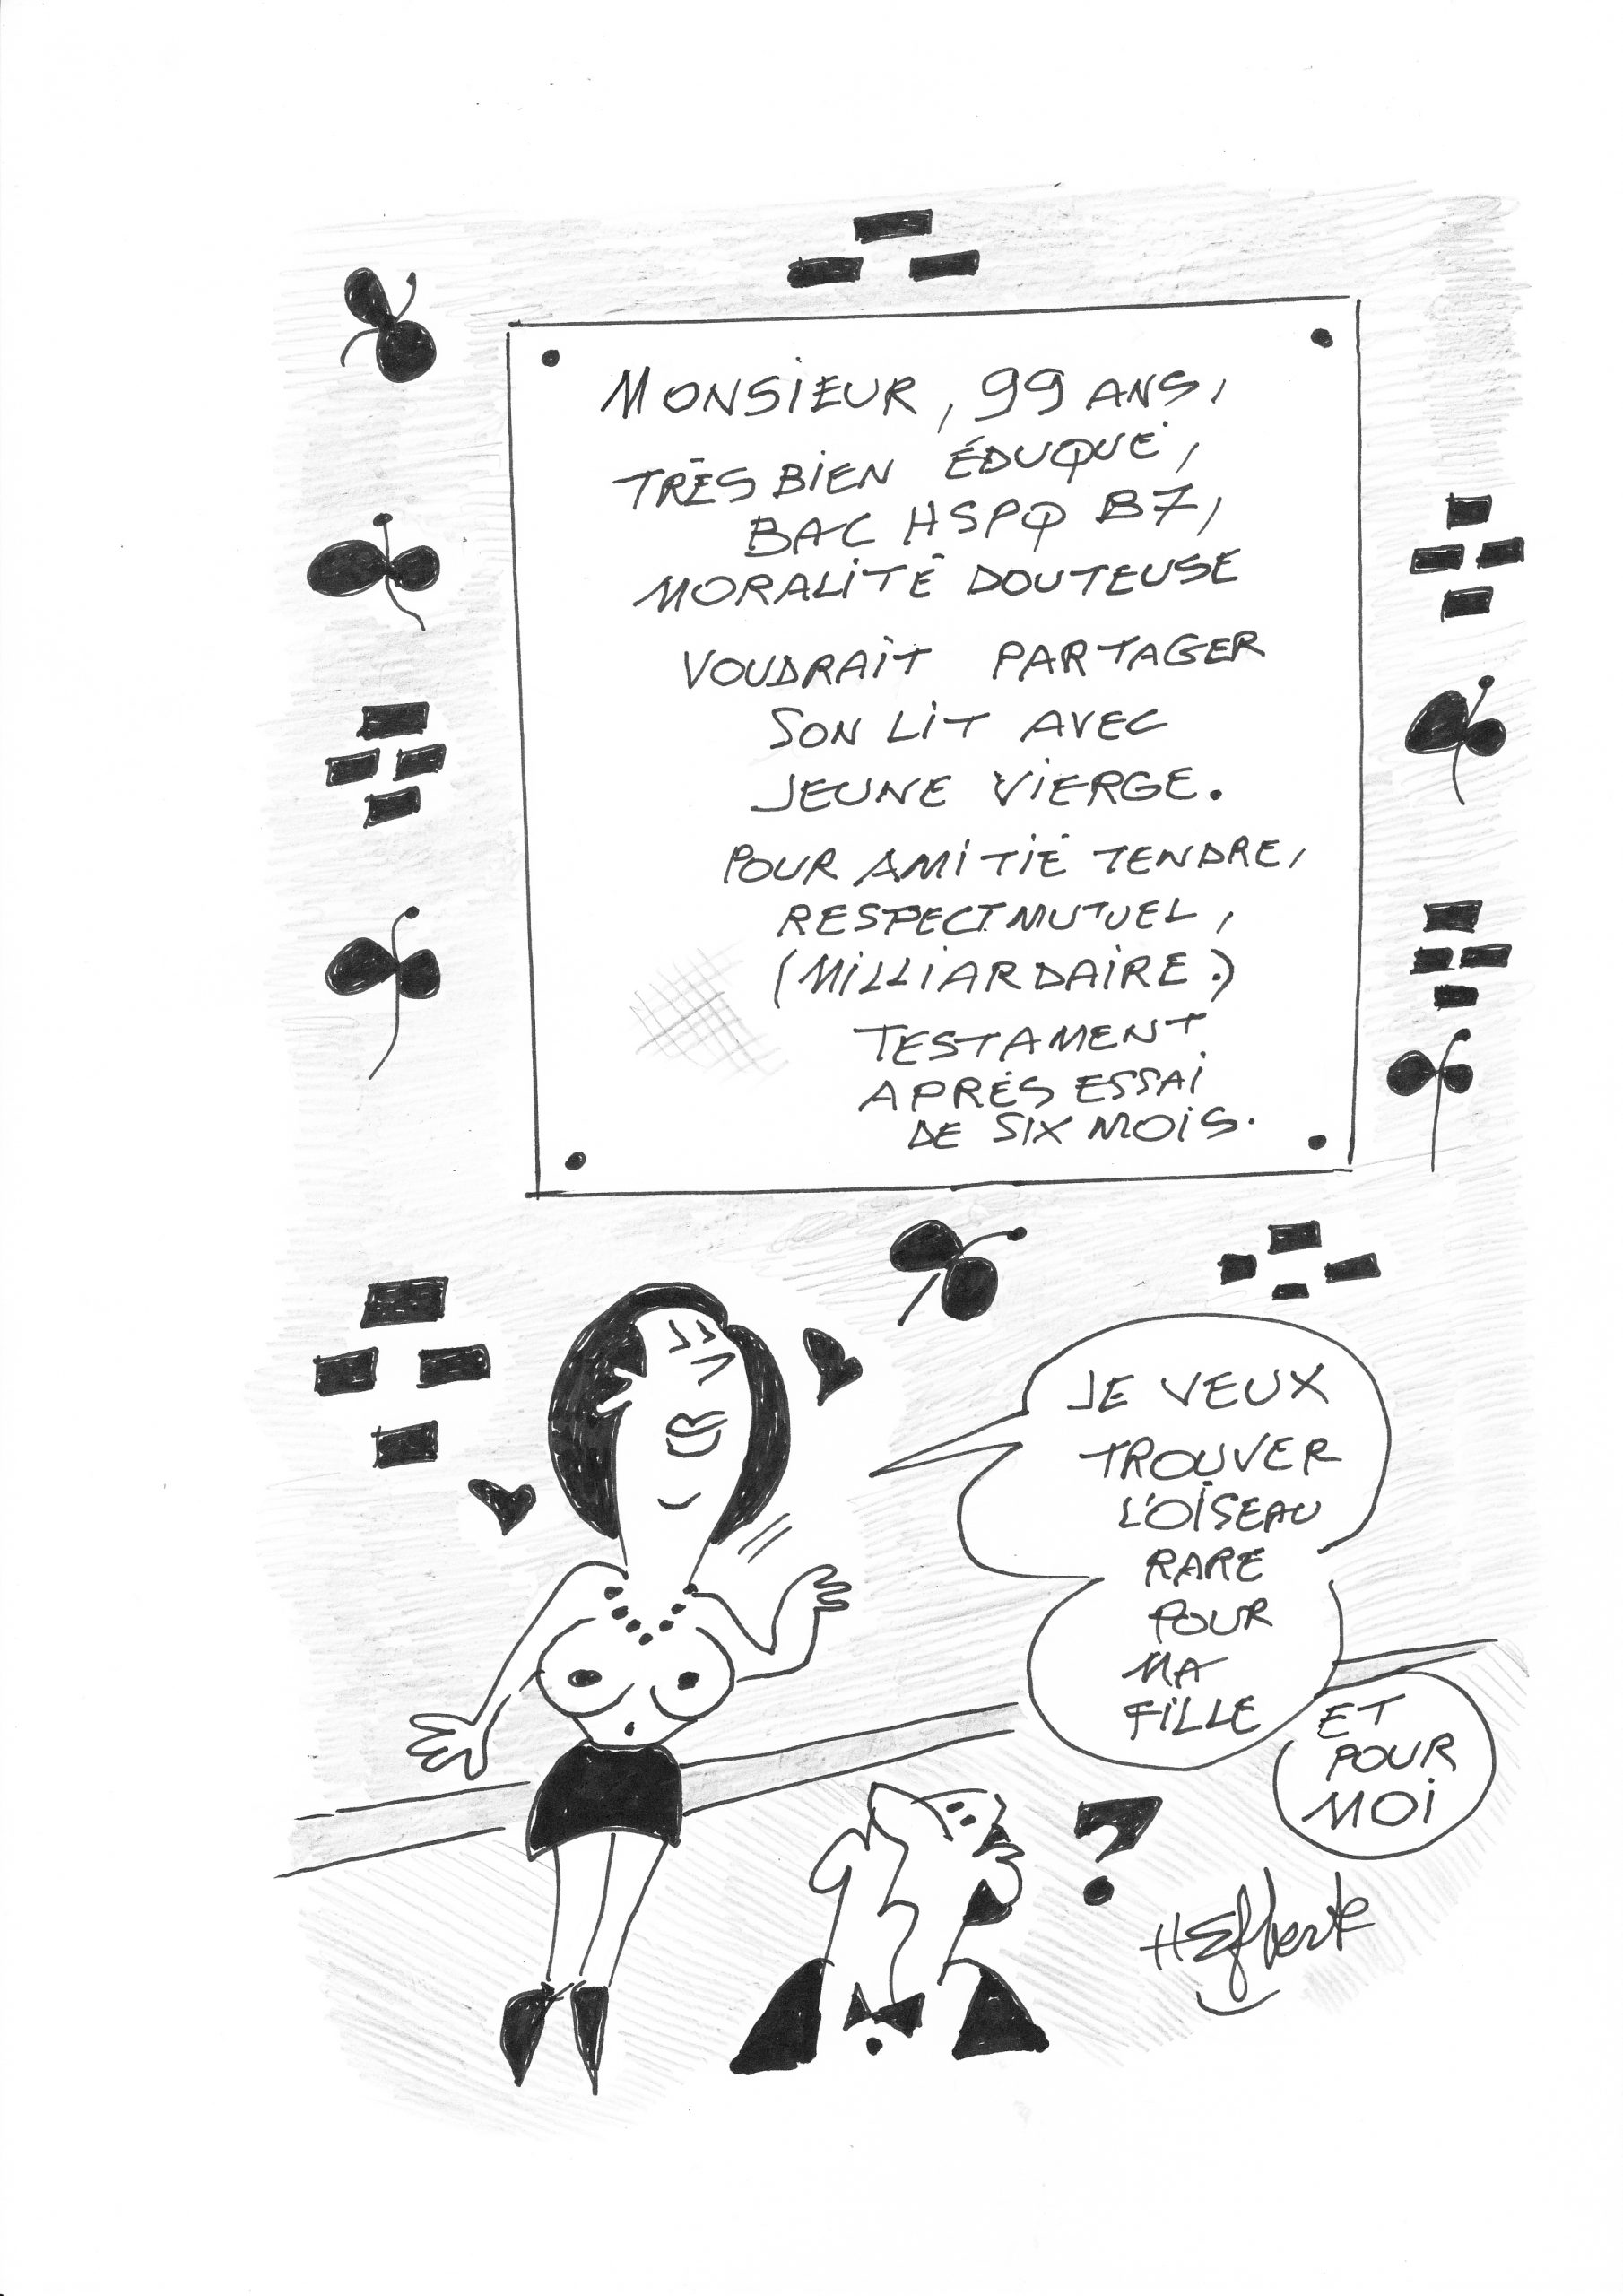 MONSIEUR, 99 ANS,
TRÈS BIEN ÉDUQUÉ,
BAC HSPQ B7,
MORALITÉ DOUTEUSE
VOUDRAIT PARTAGER
SON LIT AVEC
JEUNE VIERGE.
POUR AMITIÉ TENDRE,
RESPECT MUTUEL,
(MILLIARDAIRE.)
TESTAMENT
APRÈS ESSAI
DE SIX MOIS.
JE VEUX
TROUVER
L'OISEAU
RARE
POUR
MA
FILLE
ET
POUR
MOI
?